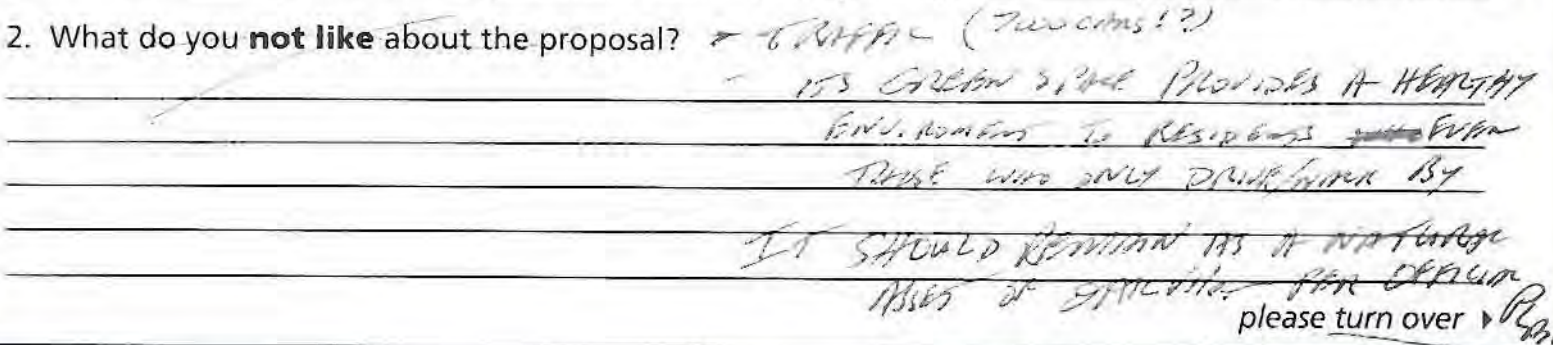 2. What do you not like about the proposal? - TRAFFIC (Two cars!?)
- ITS GREEN SPACE PROVIDES A HEALTHY
ENVIRONMENT TO RESIDENTS EVEN
THOSE WHO ONLY DRIVE/WALK BY
IT SHOULD REMAIN AS A NATURAL
ASSET OF PER OFFICIAL
please turn over ▸